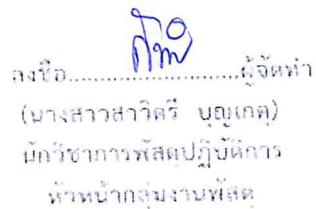 ลงชื่อ.......................ผู้จัดทำ
(นางสาวสาวิตรี บุญเกตุ)
นักวิชาการพัสดุปฏิบัติการ
หัวหน้ากลุ่มงานพัสดุ